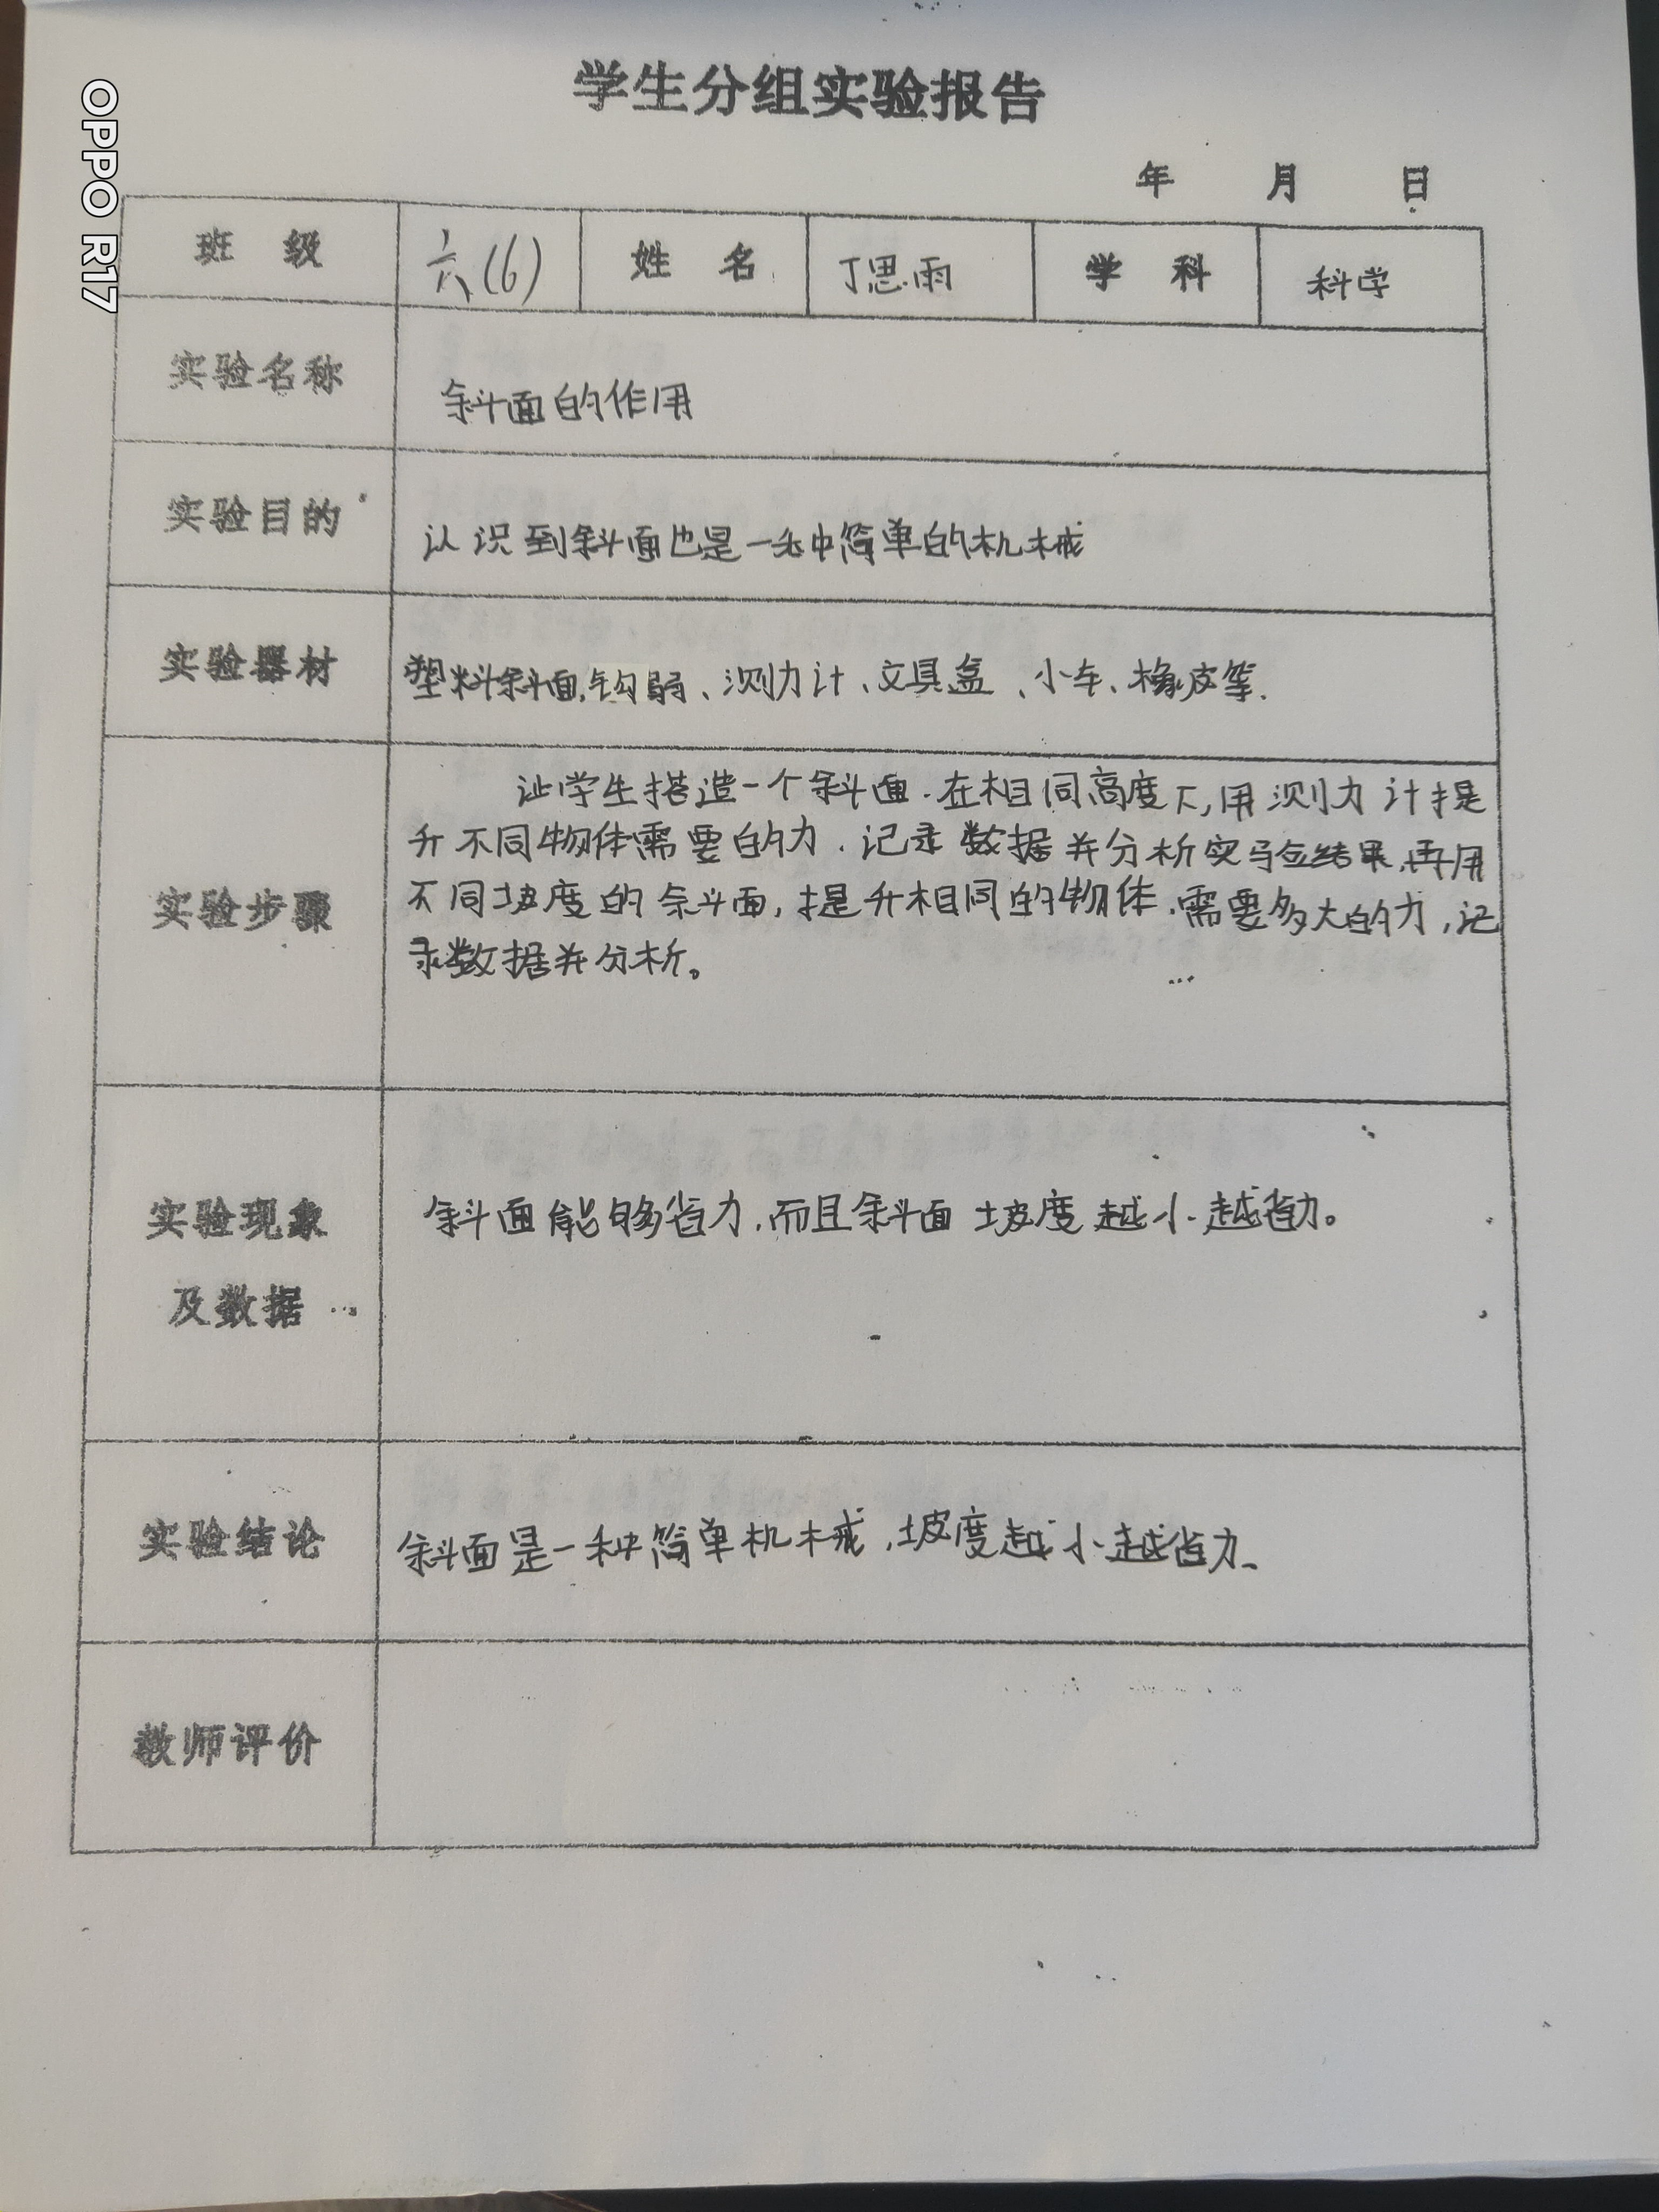 学生分组实验报告
年 月 日
班 级 六(6) 姓 名 丁思雨 学 科 科学
实验名称 斜面的作用
实验目的 认识到斜面也是一种简单的机械
实验器材 塑料斜面,钩弱、测力计、文具盒、小车、橡皮等.
实验步骤
让学生搭造一个斜面.在相同高度下,用测力计提
升不同物体需要的力.记录数据并分析实验结果,再用
不同坡度的斜面,提升相同的物体.需要多大的力,记
录数据并分析。
实验现象
及数据
斜面能够省力.而且斜面坡度越小.越省力。
实验结论 斜面是一种简单机械,坡度越小越省力、
教师评价
OPPO R17